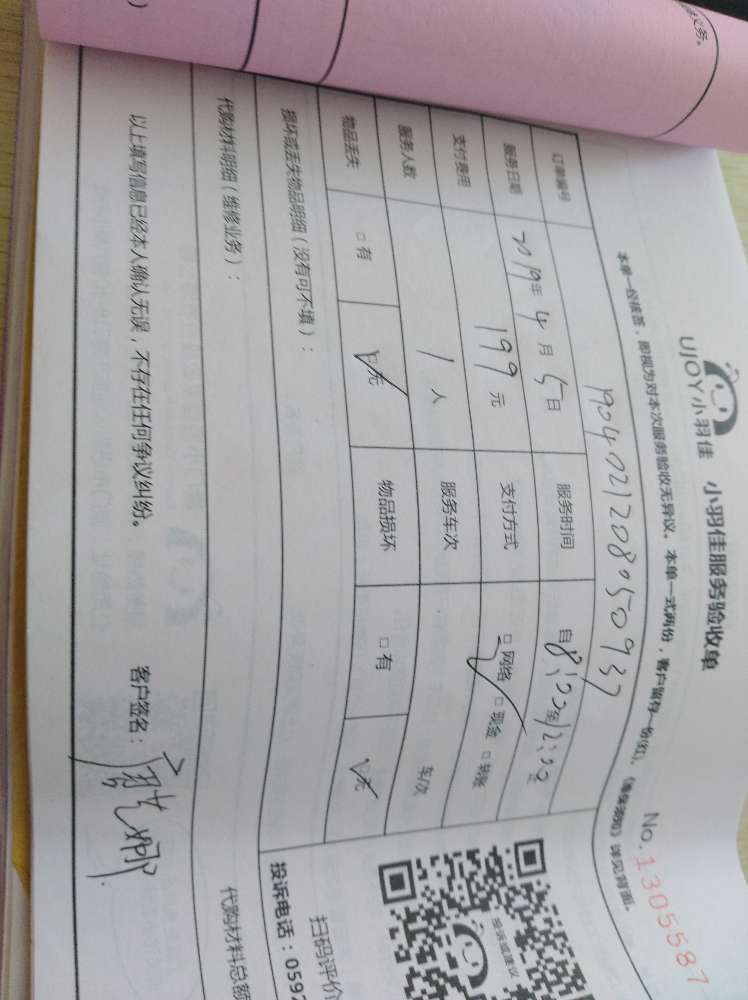 义务。
UJOY小羽佳 小羽佳服务验收单
No.1305587
本单一经核签，即视为对本次服务验收无异议。本单一式两份，客户留存一份(红)，
订单编号 190402120850937
服务日期 2019年4月5日 服务时间 自8:00至12:00
支付费用 199元 支付方式 □网络 □现金 □转账
服务人数 1人 服务车次 车/次
物品丢失 □有 □无 物品损坏 □有 □无
损坏或丢失物品明细（没有可不填）：
扫码评价
投诉电话：0592
代购材料明细（维修业务）：
代购材料总额
以上填写信息已经本人确认无误，不存在任何争议纠纷。 客户签名：